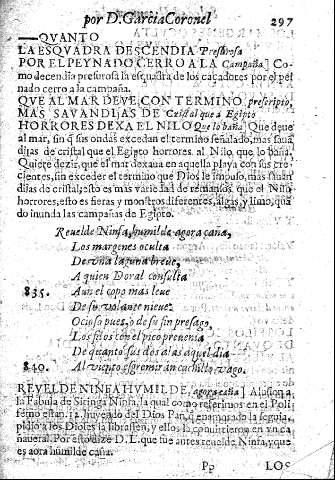 por D. Garcia Coronel 297
QVANTO
LA ESQVADRA DESCENDIA Presurosa
POR EL PEYNADO CERRO A LA Campaña] Co
mo decendia presurosa la esquadra de los caçadores por el pei
nado cerro a la campaña.
QVE AL MAR DEVE CON TERMINO prescripto,
MAS SAVANDIJAS DE Cristal que a Egipto
HORRORES DEXA EL NILO Que lo baña] Que deue
al mar, sin q̃ sus ondas excedan el termino señalado, mas sauã
dijas de cristal que el Egipto horrores al Nilo que lo baña.
Quiere dezir, que el mar dexaua en aquella playa con sus cre-
cientes, sin exceder el termino que Dios le impuso, mas sauan
dijas de cristal, esto es mas variedad de remansos que el Nilo
horrores, esto es fieras y monstros diferentes, algas, y limo, quã
do inunda las campañas de Egipto.
Reuelde Ninfa, humilde agora caña,
Los margenes oculta
De vna laguna breue,
A quien Doral consulta
835. Aun el copo mas leue
De su volante nieue.
Ocioso pues, o de su fin presago,
Los filos con el pico preuenia
De quanto sus dos alas aquel dia
840. Al viento esgremiran cuchillo vago.
REVELDE NINFA HVMILDE, agora caña] Alusion a
la Fabula de Siringa Ninfa, la qual como referimos en el Poli
femo estan. 12. huyendo del Dios Pan, q̃ enamorado la seguia,
pidio a los Dioses la librassen, y ellos la conuirtieron en vn ca
naueral. Por esto dize D. L. que fue antes reuelde Ninfa, y que
es aora humilde caña.
Pp LOS